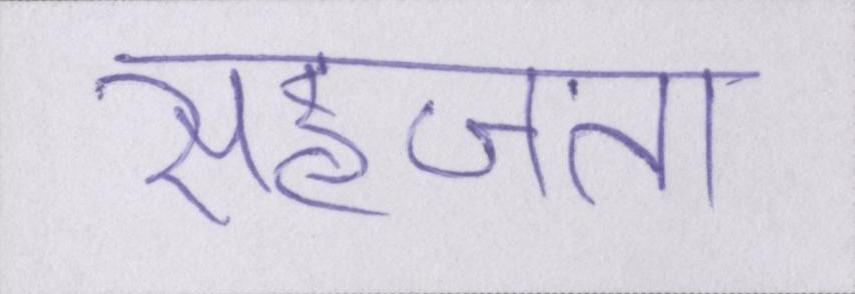 सहजता